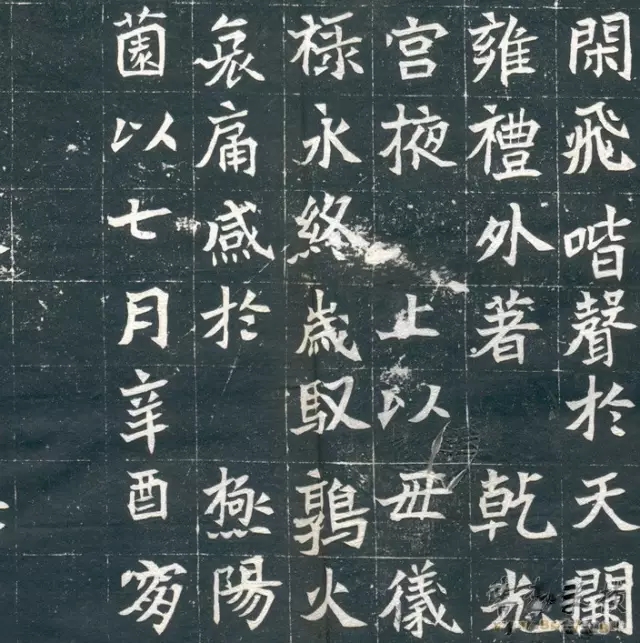 閑飛喈聲於天
雍禮外著乾光
宮掖上以母儀
祿永終歲馭鶉火
哀痛感於極陽
菌以七月辛酉